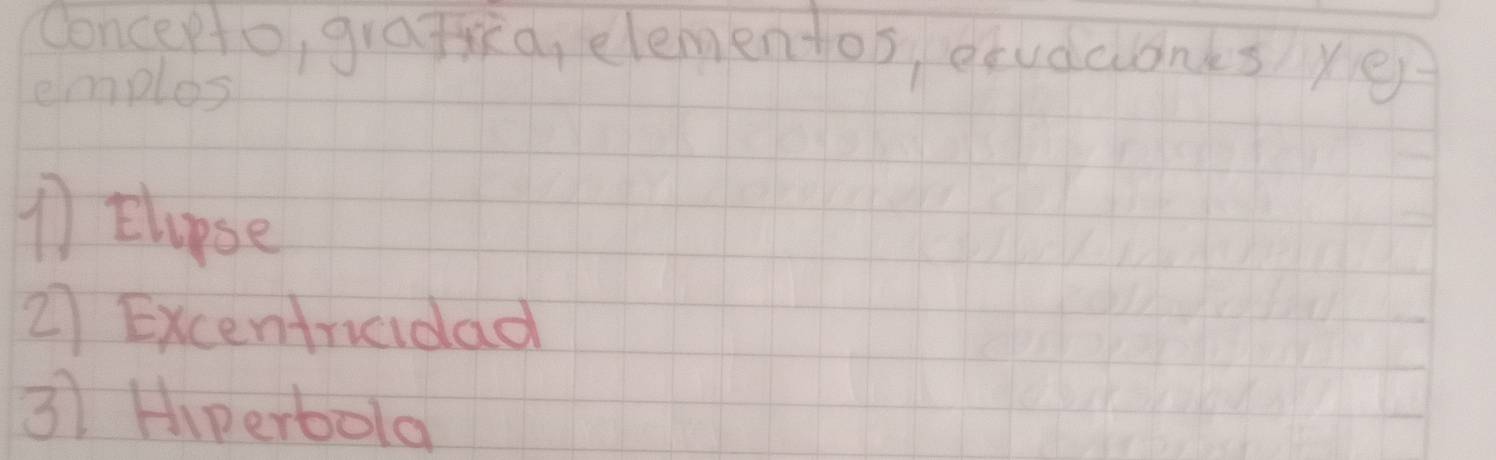 Concepto, grafica, elementos, ecuaciones y ej-
emplos
1) Elipse
2) Excentricidad
3) Hiperbola